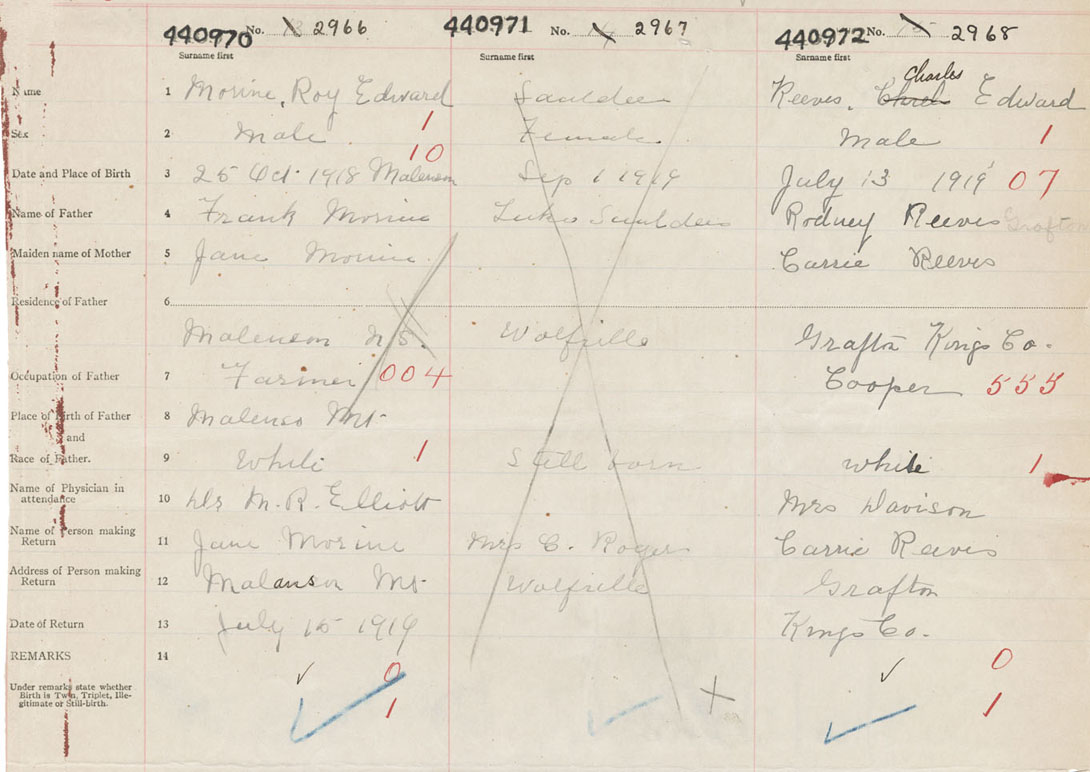 440970 No. 2966 440971 No. 2967 440972 No. 2968
Surname first Surname first Surname first
Name 1 Morine, Roy Edward Saulders Reeves, Charles Edward
Sex 2 Male 1 Female Male 1
10
Date and Place of Birth 3 25 Oct. 1918 Malenson Sep 1 1919 July 13 1919 07
Name of Father 4 Frank Morine Luke Saulders Rodney Reeves Grafton
Maiden name of Mother 5 Jane Morine Carrie Reeves
Residence of Father 6
Malenson N.S. Wolfville Grafton Kings Co.
Occupation of Father 7 Farmer 004 Cooper 555
Place of Birth of Father 8 Malenso Mt
and
Race of Father. 9 White 1 Still born white 1
Name of Physician in
attendance 10 Drs M. R. Elliott Mrs Davison
Name of Person making
Return 11 Jane Morine Mrs C. Rogers Carrie Reeves
Address of Person making
Return 12 Malanson Mt Wolfville Grafton
Date of Return 13 July 15 1919 Kings Co.
REMARKS 14
0 0
Under remarks state whether
Birth is Twin, Triplet, Ille-
gitimate or Still-birth.
1 1